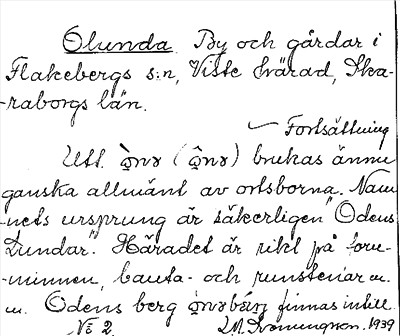 Olunda. By och gårdar i
Flakebergs s:n, Viste härad, Ska-
-raborgs län.
Fortsättning
Utt. (   ) brukas ännu
ganska allmänt av ortsborna. Nam-
-nets ursprung är säkerligen "Odens
Lundar." Häradet är rikt på forn-
-minnen, bauta- och runstenar m.
m. Odens berg finnas intill.
No 2 1939